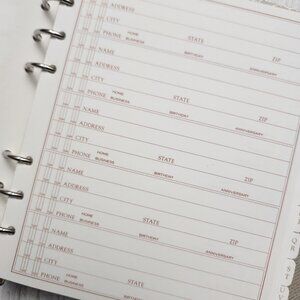 ADDRESS
CITY STATE ZIP
PHONE HOME BUSINESS BIRTHDAY ANNIVERSARY
NAME
ADDRESS
CITY STATE ZIP
PHONE HOME BUSINESS BIRTHDAY ANNIVERSARY
NAME
ADDRESS
CITY STATE ZIP
PHONE HOME BUSINESS BIRTHDAY ANNIVERSARY
NAME
ADDRESS
CITY STATE ZIP
PHONE HOME BUSINESS BIRTHDAY ANNIVERSARY
NAME
ADDRESS
CITY
S
T
U